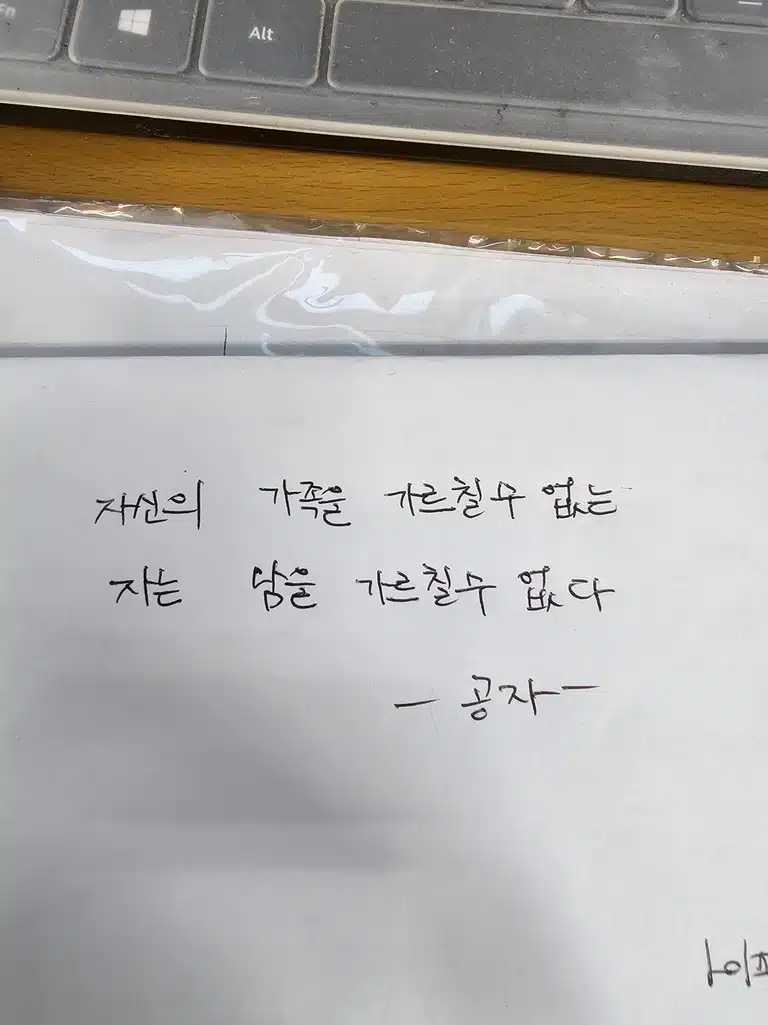 Fn
Alt
자신의 가족을 가르칠수 없는
자는 남을 가르칠수 없다
- 공자 -